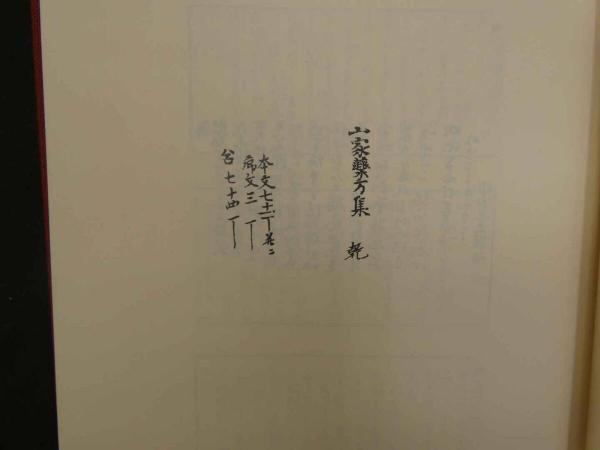 山家藥方集 乾
本文七十一丁 巻二
序文三丁
合七十四丁